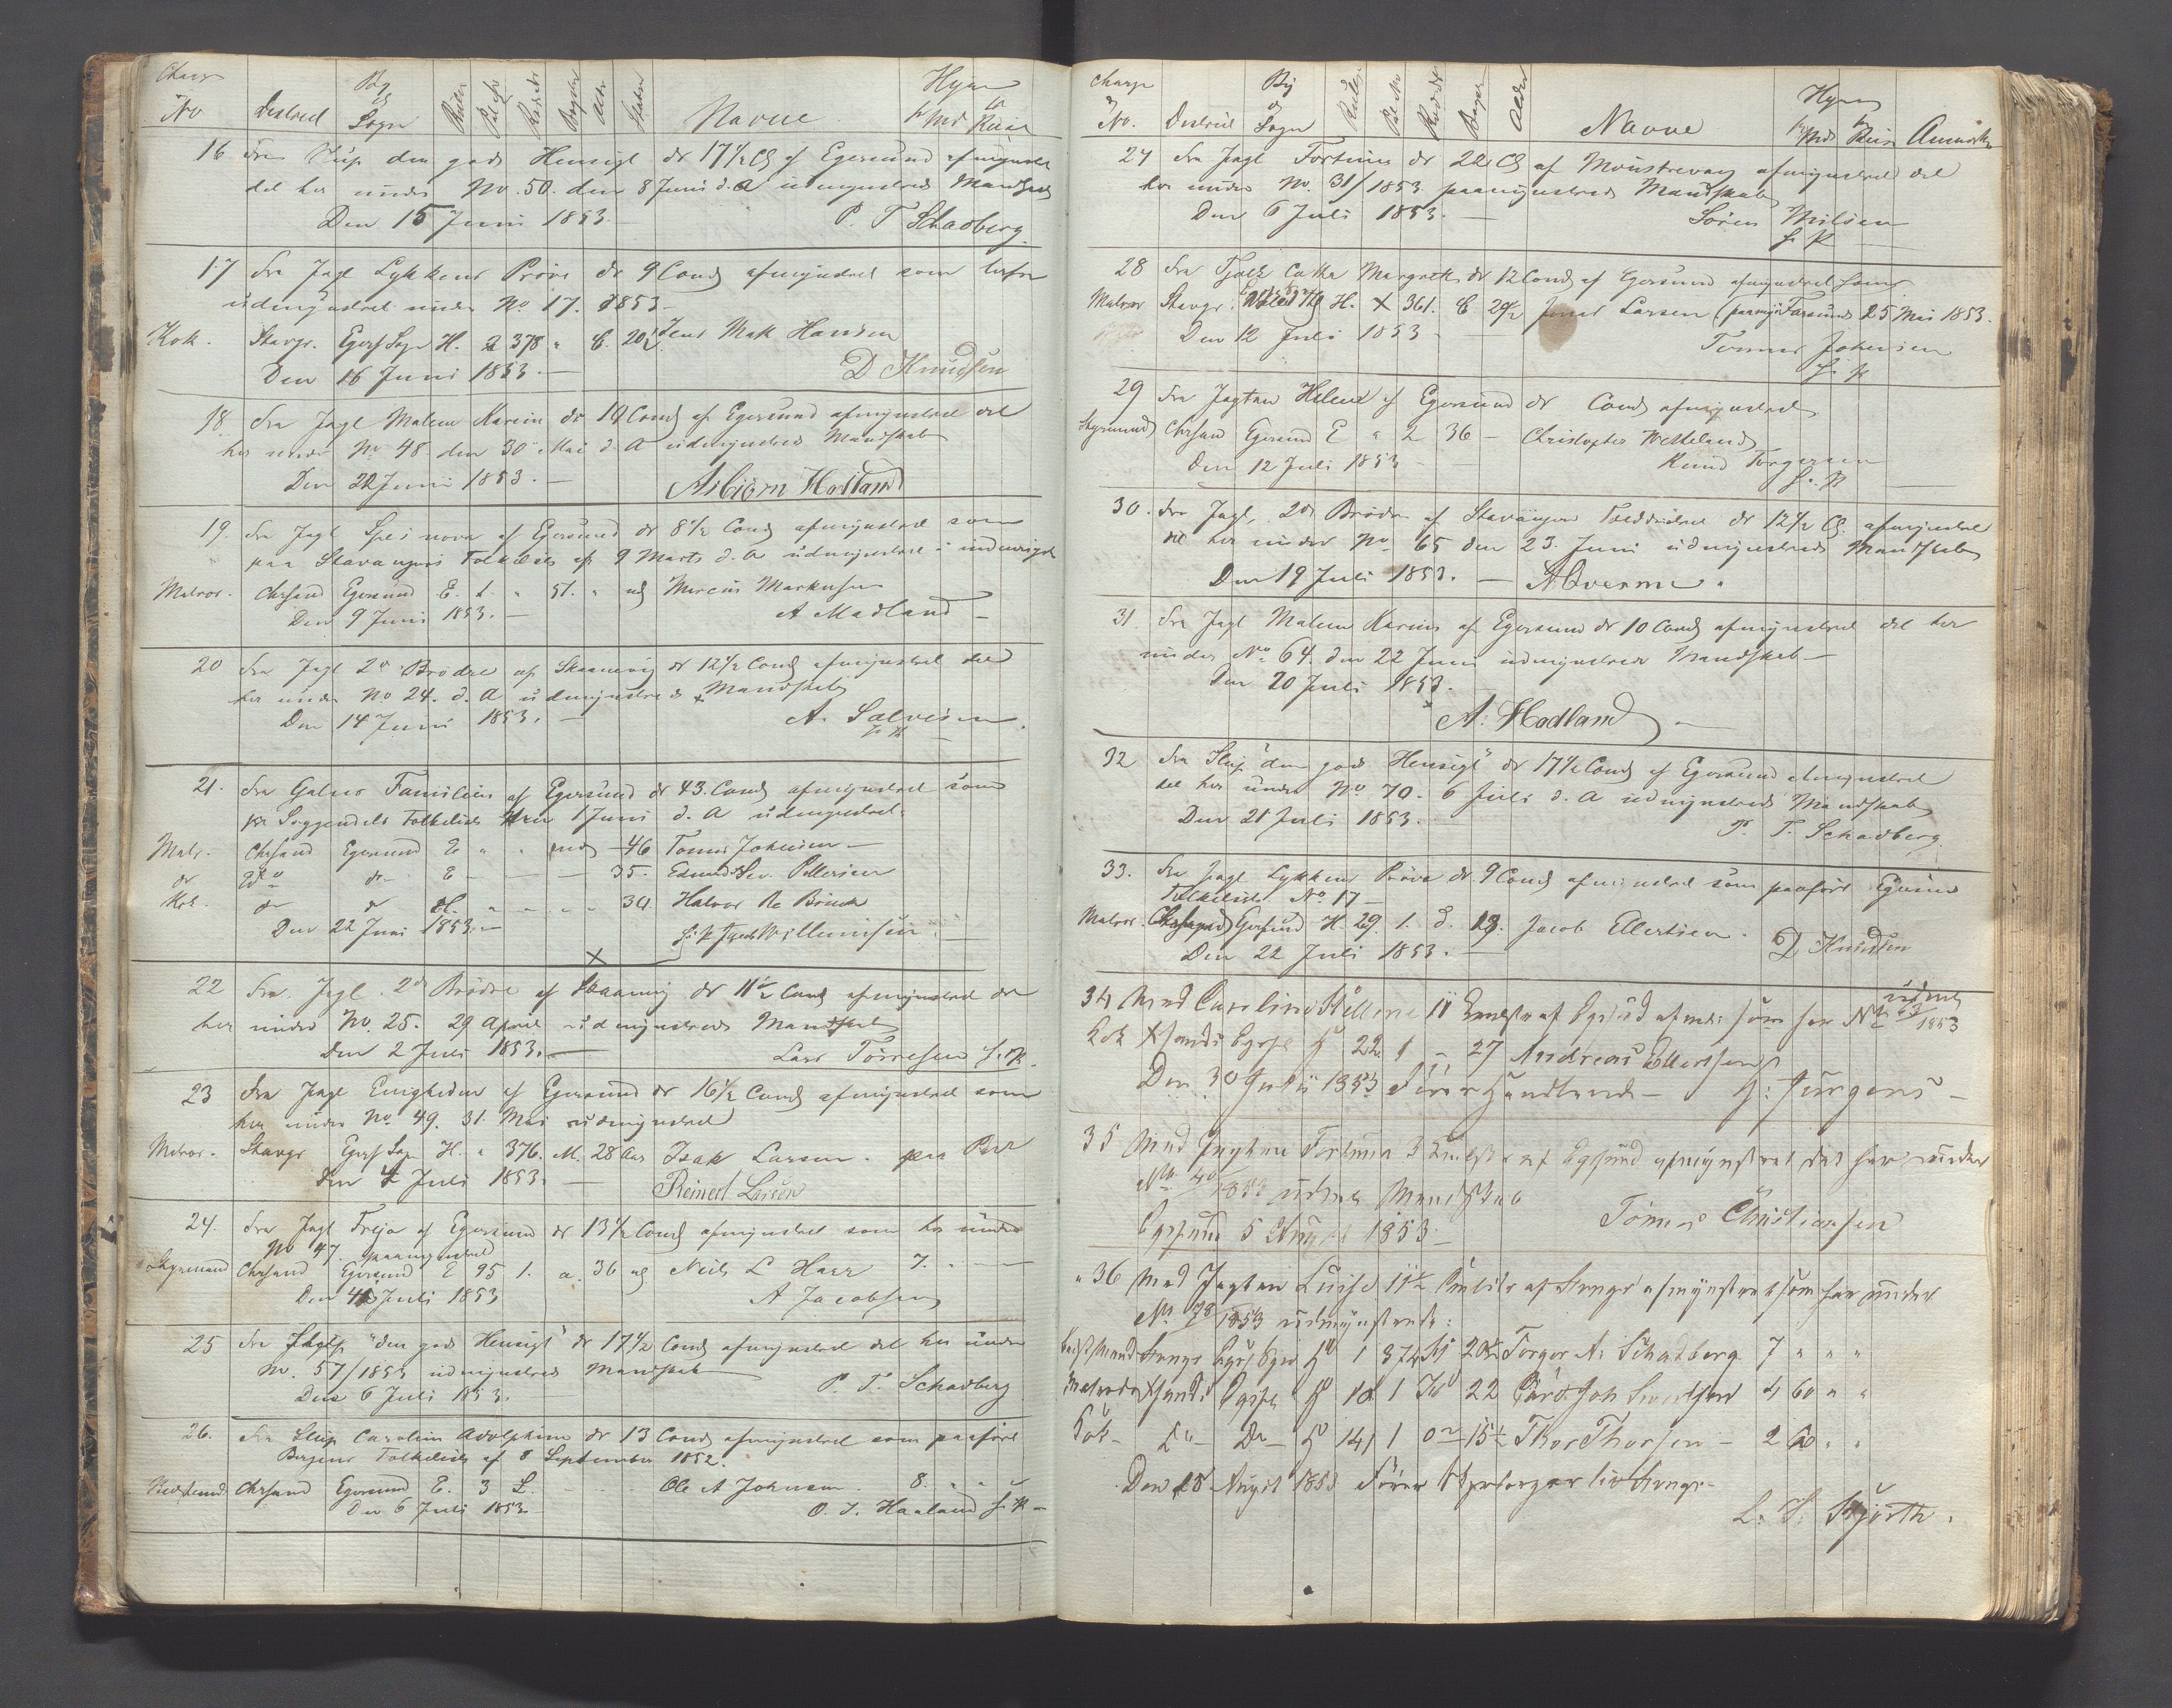 Charge
No Destrict By & Sogn Rulle Pat No Navne Hyre pr Md pr Reise
16 Fra Slup den gode Hensigt dr 17½ Cl af Egersund afmynstret
det her under No. 50. den 8 Juni d. A udmynstrede Mandskab
Den 15 Juni 1853.
P. T Schadberg
17 Fra Jagt Lykkens Prøve dr 9 Comd afmynstret som herfra
udmynstret under No 17. 1853
Kok. Stavgr. Egers Sogn H. 2 378 " C. 20½ Jens Mak Hansen
Den 16 Juni 1853.
D Knudsen
18 Fra Jagt Malene Karine dr 10 Comd af Egersund afmynstret det
her under No 48 den 30 Mai d. A udmynstrede Mandskab
Den 22 Juni 1853.
Asbiørn Hodland
19. Fra Jagt Spes nova af Egersund dr 8½ Comd afmynstret som
paa Stavangers Folkeliste af 9 Marts d. A udmynstret
Matros. Chrsand Egersund E. 1. " 51. " Marcus Markusen
Den 9 Juni 1853.
A Madland
20 Fra Jagt 2de Brødre af Skaanevig dr 12½ Comd afmynstret det
her under No 24. d. A udmynstrede Mandskab
Den 14 Juni 1853.
A. Salvesen
21. Fra Galeas Familien af Egersund dr 43. Comd afmynstret som
pr Soggendals Folkeliste 1 Juni d. A udmynstret.
Matr. Chrsand Egersund E " " 46 Tomas Johnsen
do do do E 35. Edvard Sev. Pettersen
Kok. do do H. " " " " 30. Halvor
Den 22 Juni 1853.
22 Fra Jagt 2de Brødre af Skaanvig dr 11½ Comd afmynstret det
her under No. 25. 29 April udmynstrede Mandskab
Den 2 Juli 1853.
Lars Tørresen f: P.
23 Fra Jagt Enigheden af Egersund dr 16½ Comd afmynstret som
her under No. 49. 31. Mai udmynstret
Matros. Stavgr Egers Sogn H. " 376. M. 28 Aar Isak Larsen.
Den 4 Juli 1853.
Reinert Larsen
24. Fra Jagt Freja af Egersund dr 13½ Comd afmynstret som her under
No 47. paamynstret
Styrmand Chrsand Egersund E 95 1. a. 36 Neils L Haar 7.
Den 4 Juli 1853
A Jacobsen
25 Fra Slup "den gode Hensigt" dr 17½ Comd afmynstret det her under
No. 57/1853 udmynstrede Mandskab
Den 6 Juli 1853.
P. T. Schadberg
26. Fra Slup Carolin Adolphine dr 13 Comd afmynstret som paaført
Bergens Folkeliste af 8 September 1852.
Chrsand Egersund E. 3 L. Ole A Johnsen 8.
Den 6 Juli 1853
O. J. Haaland f: P
Charge & No. Destrict By & Sogn Rulle Pat No Alder Navne Hyre pr Md pr Reise Anmærk
27 Fra Jagt Fortuna dr 22 Cl af Mousterøy afmynstret det
her under No. 31/1853 paamynstrede Mandskab
Den 6 Juli 1853.
Søren Nilsen
f: P
28 Fra Tjalk Catha Margrethe dr 12 Comd af Egersund afmynstret som
Matros Stavgr. H. X 361. C 20½ Jonas Larsen (paamyn Farsund 25 Mai 1853.
Den 12 Juli 1853
Tomas Johnsen
f: P
29 Fra Jagten Helene af Egersund dr Comd afmynstret
Styrmand Chrsan Egersund E " 2 36 – Christopher Wetteland
Den 12 Juli 1853
Knud Torgersen
f. P
30. Fra Jagt, 2de Brødre af Stavanger Tolddistrict dr 12½ Cl. afmynstret
det her under No. 65 den 23. Juni udmynstrede Mandskab
Den 19 Juli 1853.
31. Fra Jagt Malene Karine af Egersund dr 10 Comd afmynstret det her
under No. 64. den 22 Juni udmynstrede Mandskab
Den 20 Juli 1853.
A: Hodland
32 Fra Slup "den gode Hensigt" dr 17½ Comd af Egersund afmynstret
det her under No 70. 6 Juli d. A udmynstrede Mandskab
Den 21 Juli 1853.
P. T. Schadberg.
33. Fra Jagt Lykkens Prøve dr 9 Comd afmynstret som paaført Egersund
Folkeliste No. 17
Matros. Chrsand Egersund H. 29. 1. 19. Jacob Ellertsen.
Den 22 Juli 1853.
D Knudsen
34 Med Caroline Helene 11 Comlst af Egersund afmst: som her No 63/1853 udmst
Kok Xsands Egrs H 22. 1 – 27 Andreas Ellertsen
Den 30 Juli 1853 Fører
H: Jürgens
35 Med Jagten Fortuna 3 Cmlstr af Egersund afmynstret det her under
No 40/1853 udmst Mandskab
Egersund 5 August 1853
Tomas Christiansen
36 Med Jagten Luise 11½ Cmlstr af Stvngr afmynstret som her under
No 78/1853 udmynstrede:
Bestmand Stvngr Egrs Sgn H 1 374 20½ Torger A: Schadberg 7 " " "
Matros Xsands Egrs H 10 1 22 Joh Sivertsen 4 60 " "
Kok Do Do H 141 1 15½ Thor Thorsen 2 60 " "
Den 15 August 1853 Fører
L. S. Hjorth.